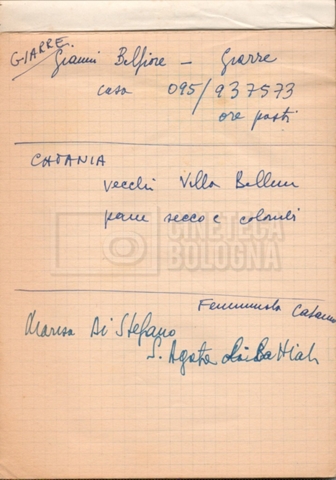 GIARRE.
Gianni Belfiore - Giarre
casa 095/937573
ore pasti
CATANIA
vecchi Villa Bellini
pane secco e colombi
CINETECA
BOLOGNA
Femminista Catania
Marisa Di Stefano
S. Agata Li Battiati